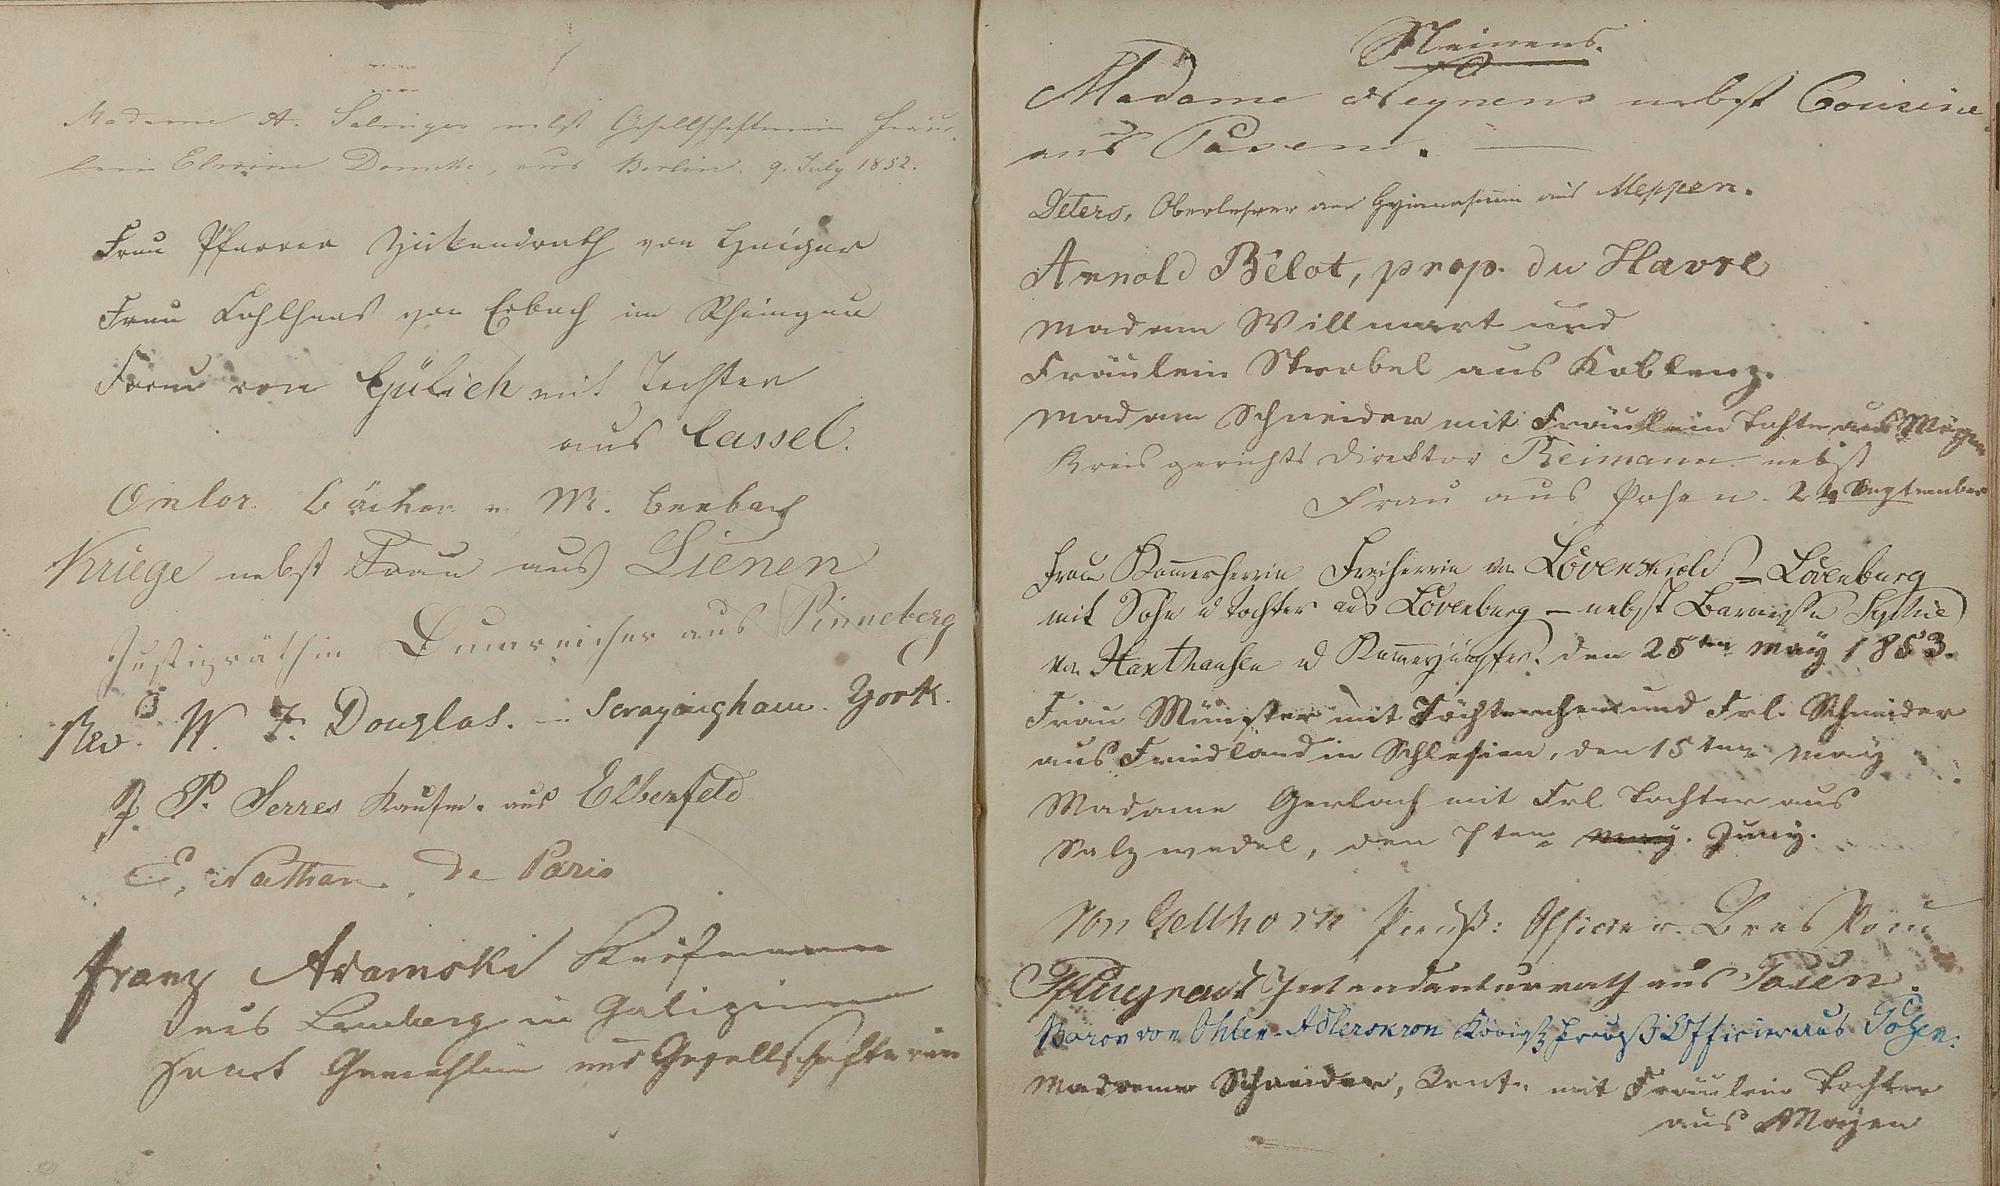 Madame A. Salinger nebst Gesellschafterin Fräu-
lein Elwine aus Berlin. 9. July 1852.
Frau Pfarrer von Haiger
Frau Kohlhaas von Erbach im Rheingau
Frau von Gülich mit Tochter
aus Cassel.
Omlor M.
Kriege nebst Frau aus Lienen
Justizräthin Dumreicher aus Pinneberg
Rev. W. F. Douglas. – Scrayingham. York.
J. P. Serres Kaufm. aus Elberfeld
C. Nathan. de Paris
Franz Adamski Kaufmann
aus Lemberg in Galizien
sammt Gemahlin und Gesellschafterin
Steinens.
Madame Steynens nebst Cousine
aus Posen. —
Deters, Oberlehrer am Gymnasium aus Meppen.
Arnold Bélot, prop. du Havre
Madam Willmart und
Fräulein Strobel aus Koblenz.
Madam Schneider mit Fräulein Tochter aus Mayen
Kreisgerichts Direktor Reimann nebst
Frau aus Posen. 24 September
Frau Kammerherrin Freiherrin von Lövenskiold – Lövenburg
mit Sohn u Tochter aus Lövenburg – nebst Baronesse
von Haxthausen u Kammerjungfer. den 25ten May 1853.
Frau Münster mit Töchterchen und Frl. Schneider
aus Friedland in Schlesien, den 15ten May
Madame Gerlach mit Frl. Tochter aus
Salzwedel, den 7ten May. Juny.
Von Gellhorn Preuß: Officier.
Pflugradt Intendanturrath aus Posen.
Baron von Ohlen-Adlerskron Königl. Preuß. Officier aus Posen.
Madame Schneider, Rent. mit Fräulein Tochter
aus Mayen